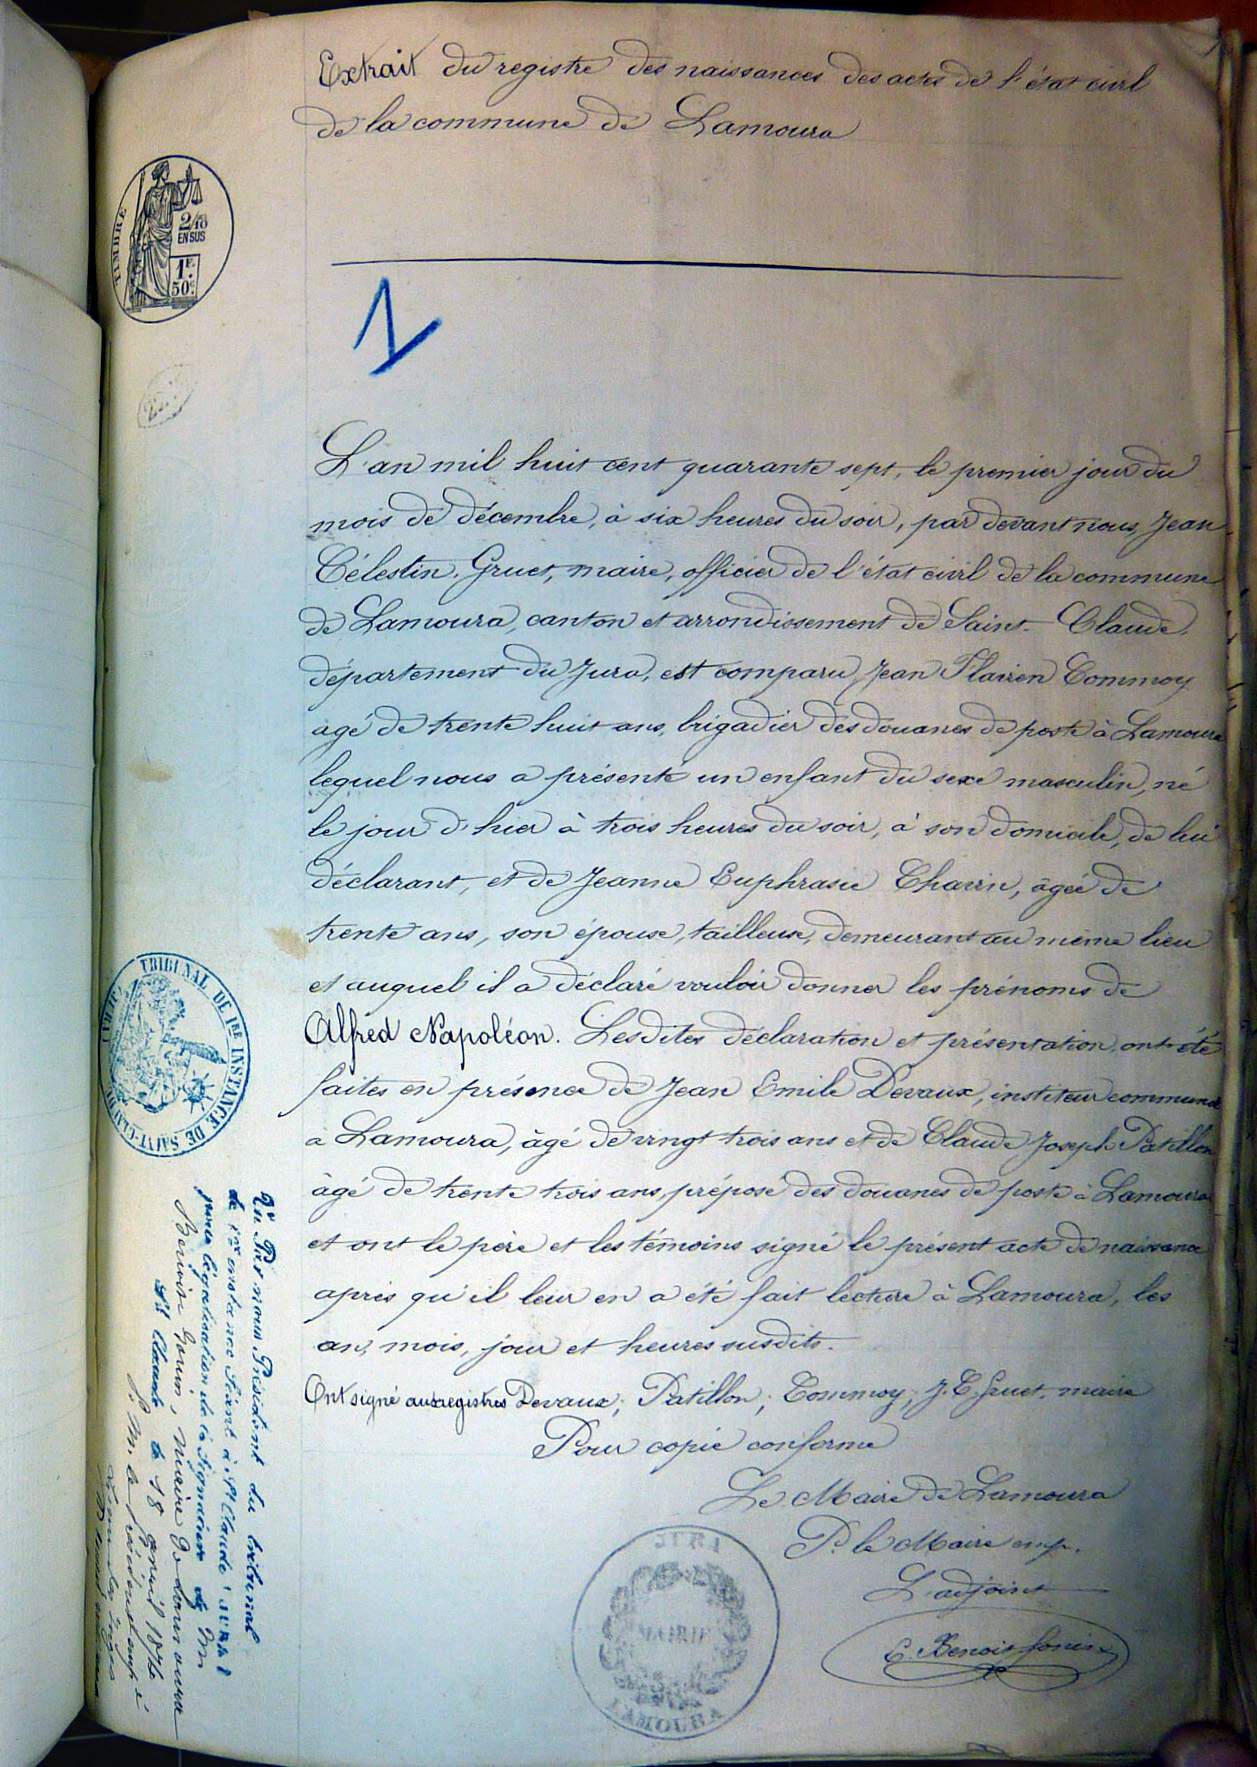 Extrait du registre des naissances des actes de l'état civil
de la commune de Lamoura
TIMBRE
2/10
EN SUS
1F.
50c.
1
L'an mil huit cent quarante sept, le premier jour du
mois de décembre, à six heures du soir, par devant nous, Jean
Célestin Gruet, maire, officier de l'état civil de la commune
de Lamoura, canton et arrondissement de Saint-Claude,
département du Jura, est comparu Jean Flavien Commoy
agé de trente huit ans, brigadier des douanes de poste à Lamoura
lequel nous a présenté un enfant du sexe masculin, né
le jour d'hier à trois heures du soir, à son domicile, de lui
déclarant, et de Jeanne Euphrasie Charrin, âgée de
trente ans, son épouse, tailleuse, demeurant au même lieu
et auquel il a déclaré vouloir donner les prénoms de
Alfred Napoléon. Les dites déclaration et présentation ont été
faites en présence de Jean Emile Devaux, instituteur communal
a Lamoura, âgé de vingt trois ans et de Claude Joseph Patillon
âgé de trente trois ans, préposé des douanes de poste à Lamoura
et ont le père et les témoins signé le présent acte de naissance
après qu'il leur en a été fait lecture à Lamoura, les
an, mois, jour et heures susdits.
Ont signé aux registres Devaux; Patillon; Commoy; J. C. Gruet, maire
Pour copie conforme
Le Maire de Lamoura
P. le Maire emp.
L'adjoint
C. Benoit Gonin
TRIBUNAL DE 1RE INSTANCE DE SAINT-CLAUDE (JURA)
Vu Par nous Président du tribunal
de 1re instance Séant à St Claude (Jura)
pour légalisation de la signature de Mr
St Claude le 18 1876
MAIRIE
LAMOURA
JURA